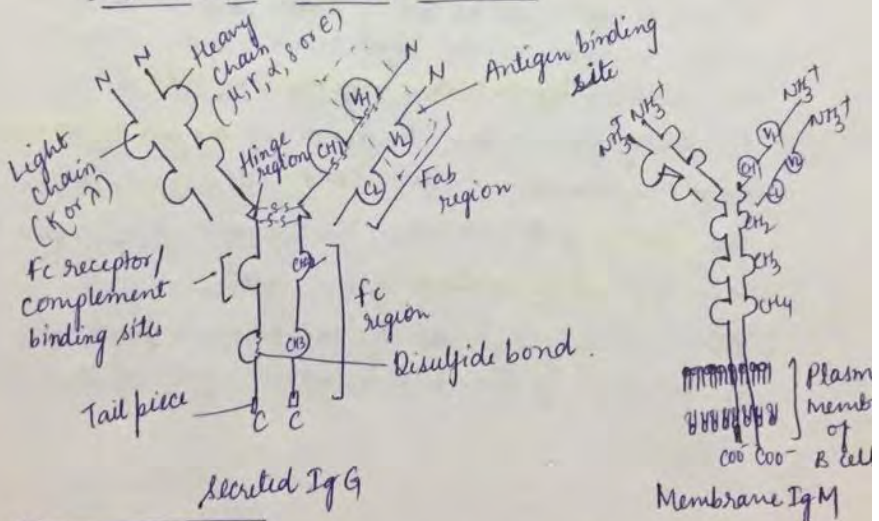 N
N
Heavy
chain
(μ, γ, α, δ or ε)
Light
chain
(K or λ)
Hinge
region
VH
CH1
S-S
S-S
N
N
VL
CL
Antigen binding
site
Fab
region
Fc receptor/
complement
binding sites
CH3
fc
region
Disulfide bond.
Tail piece
C
C
Secreted IgG
NH3+
NH3+
NH3+
NH3+
CH2
CH3
CH4
Plasm
memb
of
B cell
COO- COO-
Membrane IgM